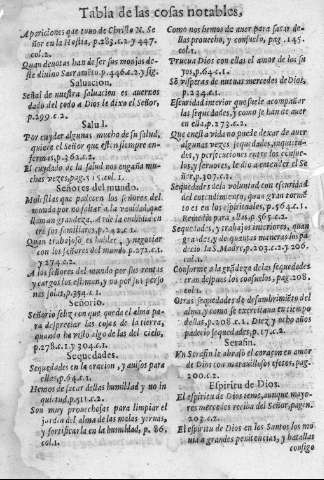 Tabla de las cosas notables,
Apariciones que tuuo de Christo N. Se
ñor en la Hostia, p.283.c.2 y 447.
col.2.
Quan deuotas han de ser sus monjas de
ste diuino Sacramẽto, p.446.c.2. y sig.
Saluacion.
Señal de nuestra saluacion es auernos
dado del todo a Dios le dixo el Señor,
p.299.c.2.
Salud.
Por cuydar algunas mucho de su salud,
quiere el Señor que estẽ siempre en-
fermas, p.362.c.2.
El cuydado de la salud nos engaña mu-
chas vezes, pag.
Señores del mundo.
Molestias que padecen los señores del
mundo por no faltar a la vanidad, que
llaman grandeza,
sus familiares, p.242.c.1.
Quan trabajoso es hablar, y negociar
con los señores del mundo p.272.c.1.
y 274.c.2.
A los señores del mundo por sus rentas
y cargos los estiman, y no por sus perso
nas solas, p.354.c.1.
Señorio.
Señorio feliz con que queda el alma pa-
ra despreciar las cosas de la tierra,
quando ha visto algo de las del cielo,
p.278.c.1. y 304.c.1.
Sequedades.
Sequedades en la oracion, y auisos para
ellas p.64.c.1.
Hemos de sacar dellas humildad y no in
quietud, p.511.c.2.
Son muy prouechosas para limpiar el
jardin del alma de las malas yeruas,
y fortificarla en la humildad, p. 86.
col.1.
Como nos hemos de auer para sacar de-
llas prouecho, y consuelo, pag. 145.
col.1.
Prueua Dios con ellas el amor de los su
yos, p.64.c.1.
Sõ visperas de nueuas mercedes de Dios,
p.234.c.1.
Escuridad interior que suele acompañar
las sequedades, y como se han de auer
en ella, p.273.c.2.
Que en esta vida no puede dexar de auer
algunas vezes sequedades, inquietu-
des, y persecuciones entre los consue-
los, y fauores, le dio a entender el Se-
ñor, p.307.c.2.
Sequedades de la voluntad con escuridad
del entendimiento, gran exercicio pa-
ra en los espirituales, p.564.c.1.
Remedio para ellas, p. 565.c.2.
Sequedades, y trabajos interiores, quan
grandes, y de quantas maneras los pa
decio la S. Madre, p.203.c.2. y 206.
col.1.
Conforme a la grãdeza de las sequedades
eran despues los consuelos, pag. 208.
col.1.
Otras sequedades de desabrimiẽto del
alma, y como se exercitaua en tiempo
dellas, p.208.c.1. Diez y ocho años
padecio sequedades, p.17.c.2.
Serafin.
Vn Serafin le abrasò el coraçon en amor
de Dios con marauillosos efetos, pag.
200.c.2.
Espiritu de Dios.
El espiritu de Dios teme, aunque mayo-
res mercedes reciba del Señor, pagin.
203.c.2.
El espiritu de Dios en los Santos los mo
uia a grandes penitencias, y hazallas
consigo